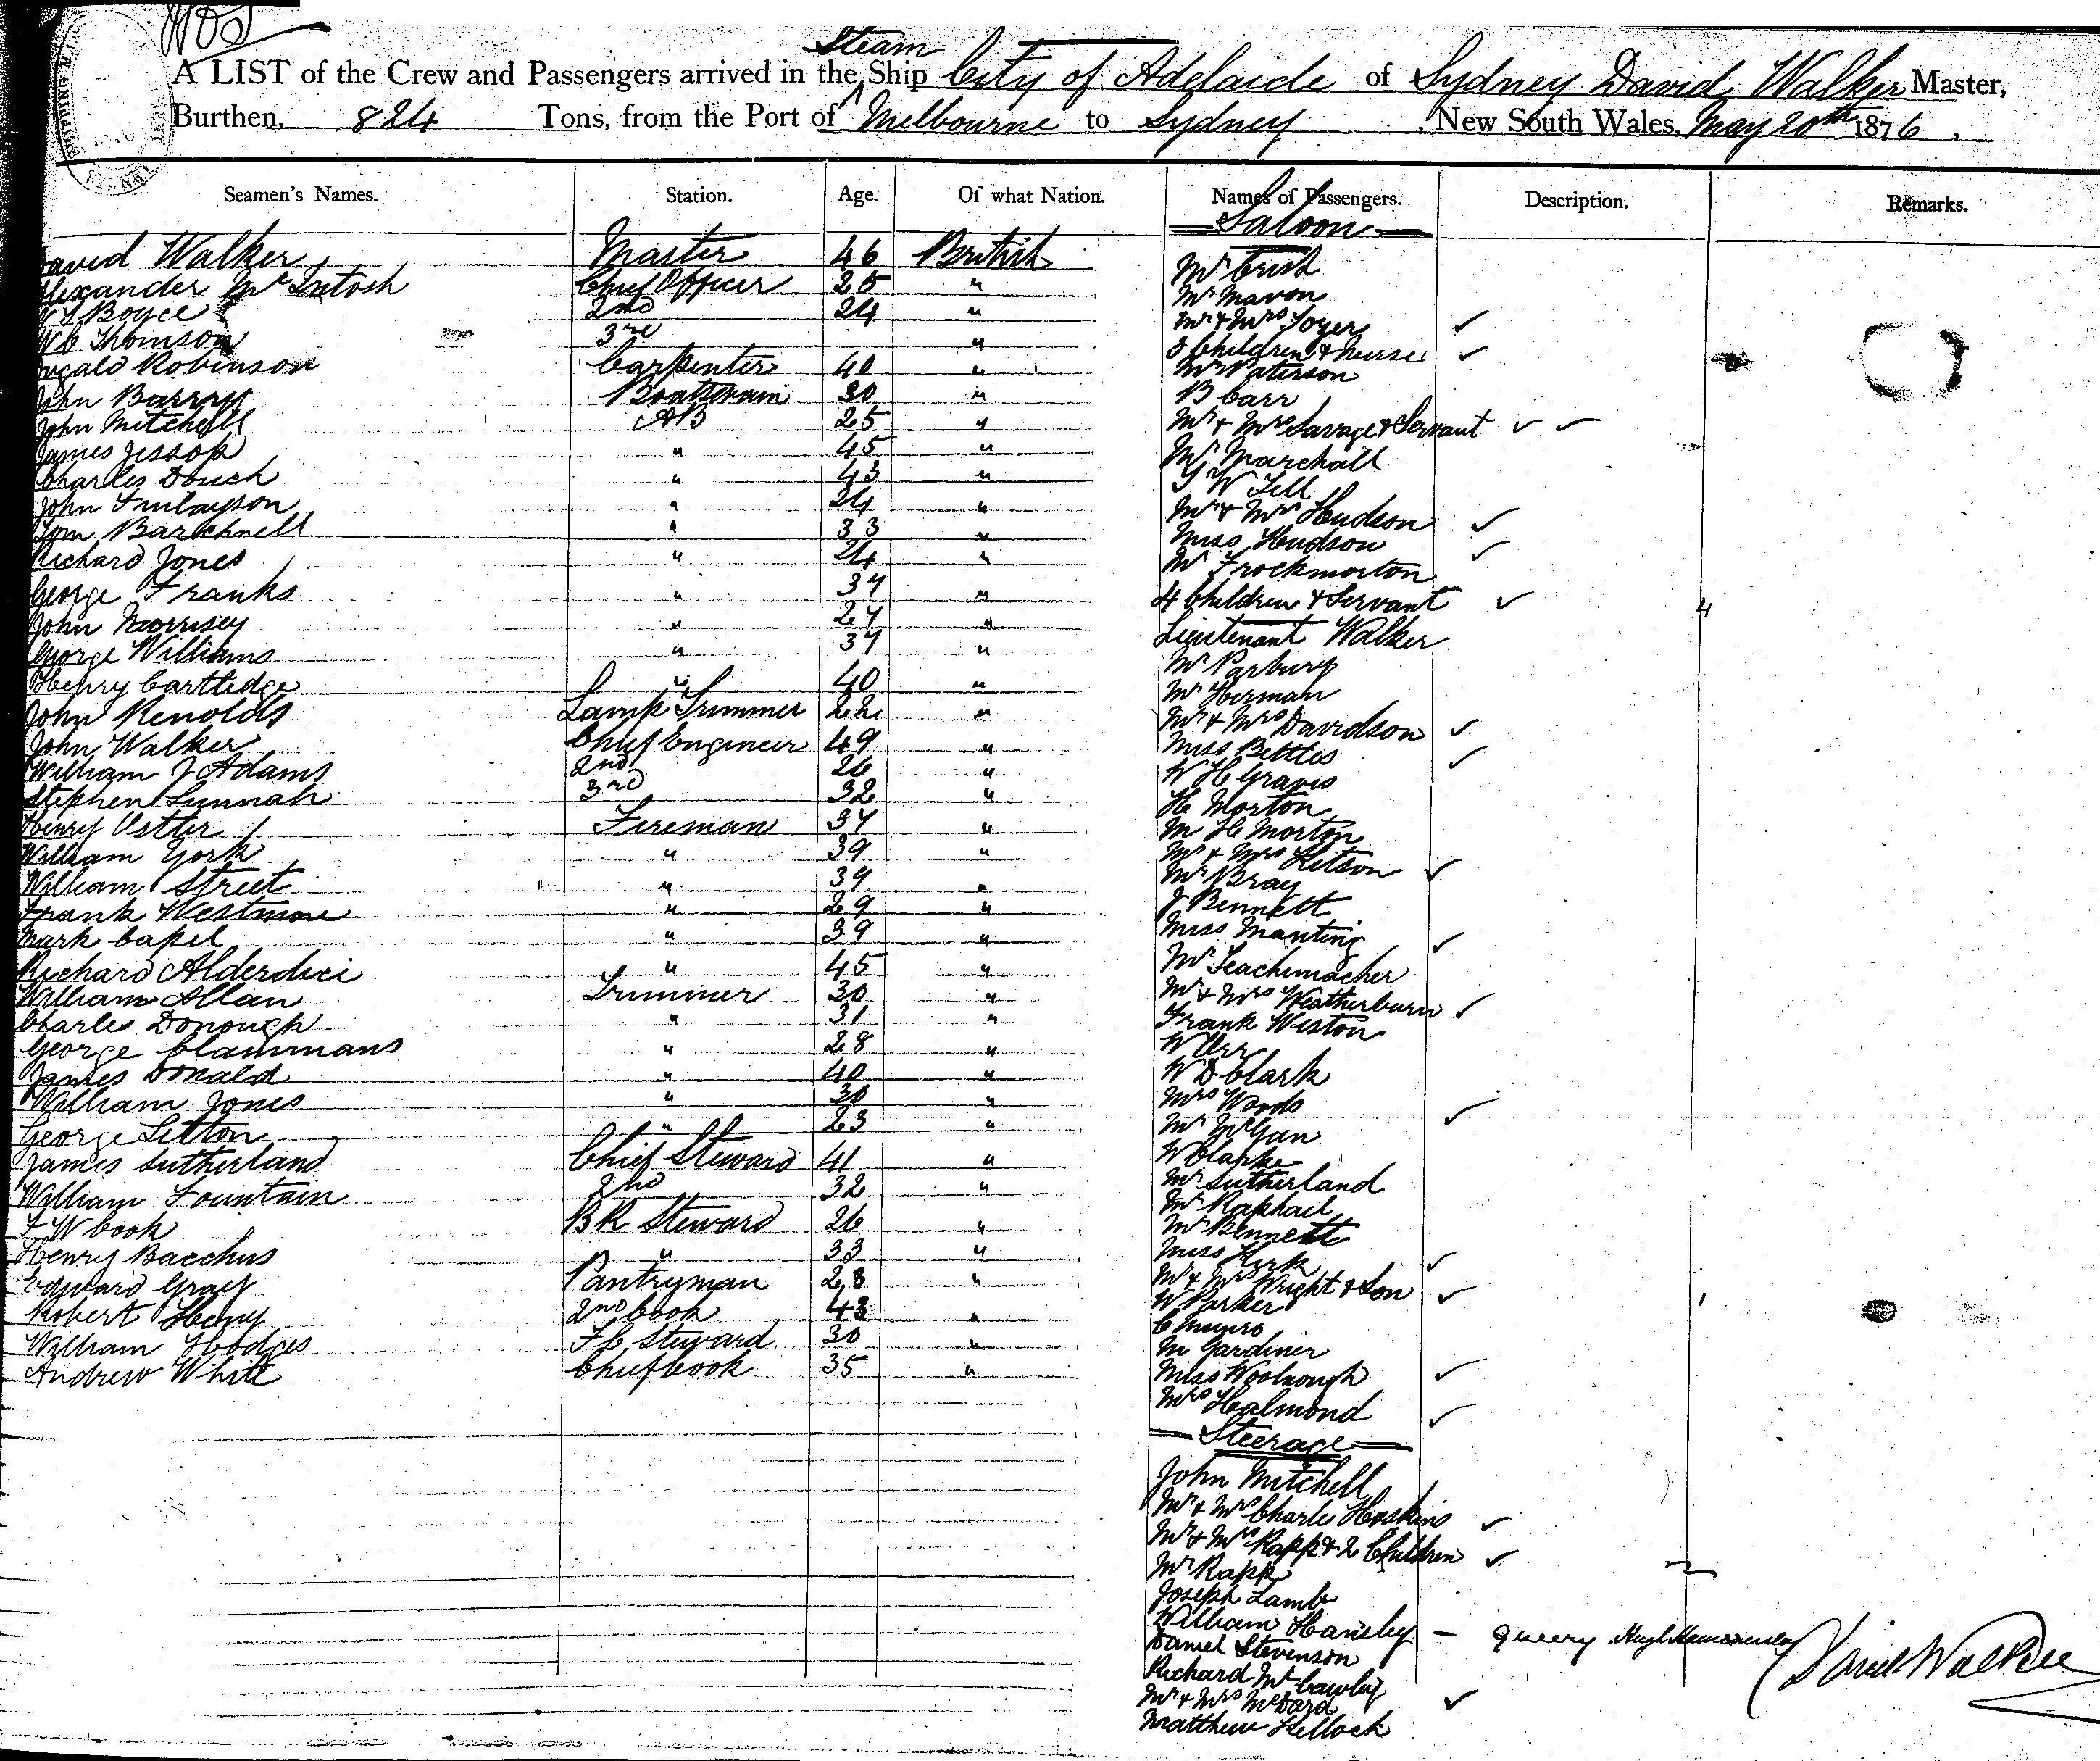 Steam
A LIST of the Crew and Passengers arrived in the Ship City of Adelaide of Sydney David Walker Master,
Burthen, 824 Tons, from the Port of Melbourne to Sydney, New South Wales, May 20th 1876.
Seamen's Names. Station. Age. Of what Nation. Names of Passengers. Description. Remarks.
Saloon
David Walker Master 46 British
Alexander McIntosh Chief Officer 25 "
Boyce 2nd 24 "
Thomson 3rd "
Robinson Carpenter 40 "
John Barron Boatswain 30 "
John Mitchell AB 25 "
James Jessop " 45 "
Charles Douch " 43 "
John Finlayson " 24 "
Tom Barchnell " 33 "
Richard Jones " 24 "
George Franks " 37 "
John Morrisey " 27 "
George Williams " 37 "
Henry Cartledge " 40 "
John Renolds Lamp Trimmer 22 "
John Walker Chief Engineer 49 "
William J Adams 2nd 26 "
Stephen Sunnah 3rd 32 "
Henry Fireman 37 "
William York " 39 "
William Street " 39 "
Frank Westmore " 29 "
Mark Capel " 39 "
Richard Alderdici " 45 "
William Allan Trimmer 30 "
Charles Donough " 31 "
George Clammans " 28 "
James Donald " 40 "
William Jones " 30 "
George Litton " 23 "
James Sutherland Chief Steward 41 "
William Fountain 2nd 32 "
F W Cook BR Steward 26 "
Henry Bacchus " 33 "
Edward Gray Pantryman 28 "
Robert Henry 2nd Cook 43 "
William Hodges F C Steward 30 "
Andrew White Chief Cook 35 "
Mr Crish
Mr Mavon
Mr & Mrs Toyer
3 Children & Nurse
Mr Paterson
B Carr
Mr & Mrs Savage & Servant
Mr Marchall
W Tell
Mr & Mrs Hudson
Miss Hudson
Mr Frockmorton
4 Children & Servant 4
Lieutenant Walker
Mr Parbury
Mr Herman
Mr & Mrs Davidson
Miss Bettles
W H Graves
H Morton
M H Morton
Mr & Mrs Kitson
Mr Bray
J Bennett
Miss Manting
Mr Leachmacher
Mr & Mrs Weatherburn
Frank Weston
W Orr
W D Clark
Mrs Woods
Mr McGan
W Clarke
Mr Sutherland
Mr Raphael
Mr Bennett
Miss Kerk
Mr & Mrs Wright & Son 1
W Parker
C Munro
M Gardiner
Miss Woolnough
Mrs Halmond
Steerage
John Mitchell
Mr & Mrs Charles Hoskins
Mr & Mrs Rapp & 2 Children 2
Mr Rapp
Joseph Lamb
William Hansley - Queery Hugh
Daniel Stevenson
Richard McCawley
Mr & Mrs McDard
Matthew Kellock
David Walker